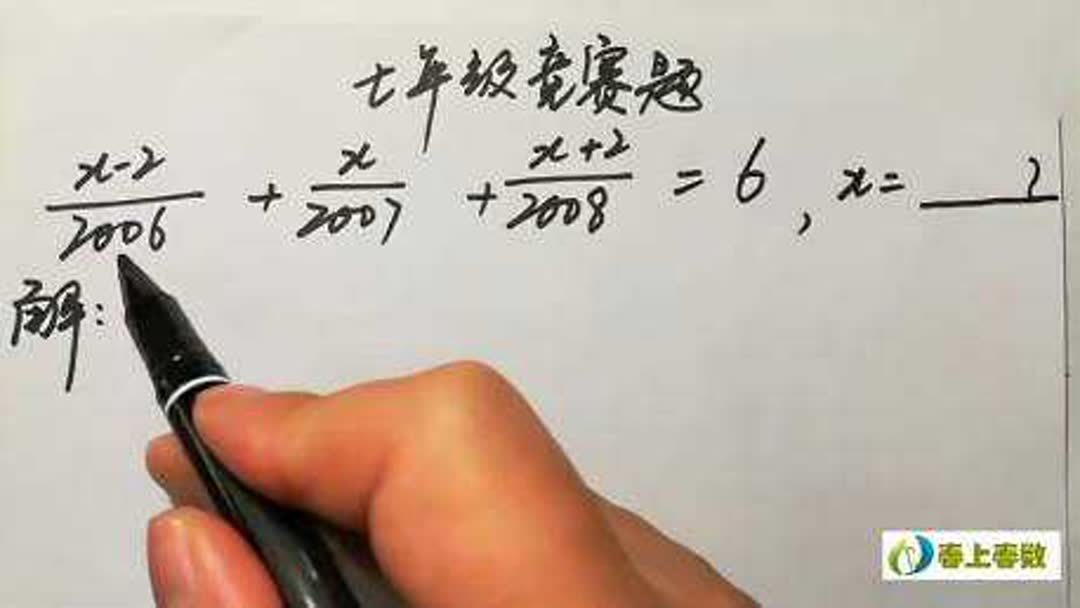 七年级竞赛题
x-2/2006 + x/2007 + x+2/2008 = 6, x=____?
解:
春上春数